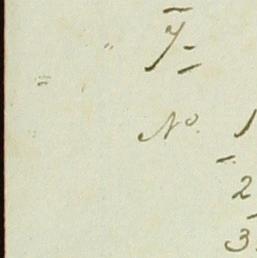 7
No. 1
2
3